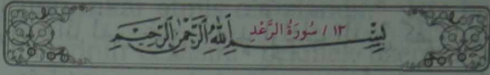 ١٣ / سُورَةُ الرَّعْدِ
بِسْمِ اللَّهِ الرَّحْمَٰنِ الرَّحِيمِ